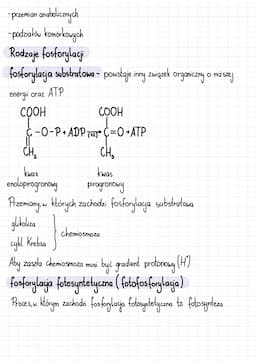 -przemian anabolicznych
-podziałów komórkowych
Rodzaje fosforylacji
fosforylacja substratowa - powstaje inny związek organiczny o niższej
energii oraz ATP
COOH COOH
C-O-P+ADP → C=O+ATP
CH₂ CH₃
kwas kwas
enolopirogronowy pirogronowy
Przemiany, w których zachodzi fosforylacja substratowa
glikoliza
chemiosmoza
cykl Krebsa
Aby zaszła chemiosmoza musi być gradient protonowy (H⁺)
fosforylacja fotosyntetyczna (fotofosforylacja)
Proces, w którym zachodzi fosforylacja fotosyntetyczna to fotosynteza